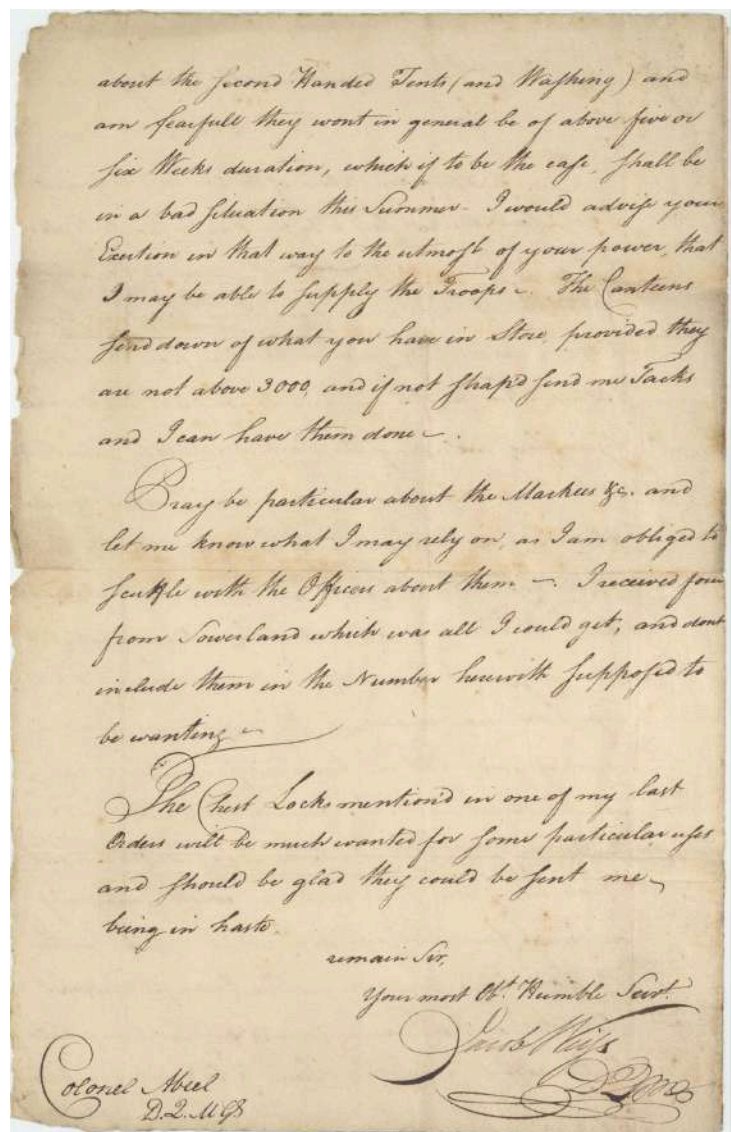 about the second Handed Tents (and Washing) and
am fearfull they wont in general be of above five or
six Weeks duration, which if to be the case, shall be
in a bad situation this Summer - I would advise your
Exertion in that way to the utmost of your power, that
I may be able to supply the Troops -. The Canteens
send down of what you have in Store, provided they
are not above 3000, and if not strap'd send me Tacks
and I can have them done -.
Pray be particular about the Markees &c. and
let me know what I may rely on, as I am obliged to
scuffle with the Officers about them -. I received four
from Sowerland which was all I could get, and dont
include them in the Number herewith supposed to
be wanting -
The Chest Locks mention'd in one of my last
Orders will be much wanted for some particular uses
and should be glad they could be sent me -
being in haste.
remain Sir,
Your most Obt. Humble Servt.
Jacob Weiss
Colonel Abeel
D.Q.M.G